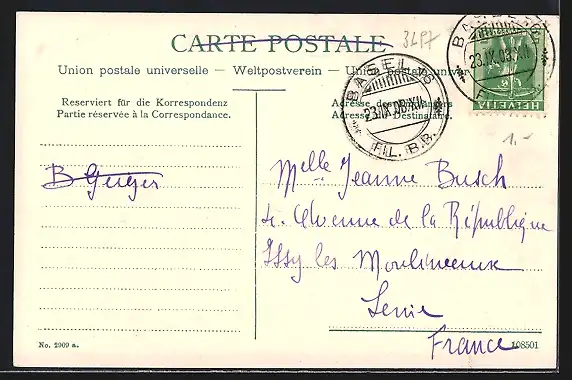 CARTE POSTALE
3497
Union postale universelle — Weltpostverein — Union postale univer
Reserviert für die Korrespondenz
Partie réservée à la Correspondance.
Adresse des Empfängers
Adresse du Destinataire.
BASEL 6
23.IX.08.XII
FIL. B.B.
BASEL 6
23.IX.08.XII
HELVETIA
1.-
B Geiger
Melle Jeanne Busch
4. Avenue de la République
Issy les Moulineaux
Seine
France
No. 2909 a.
108501